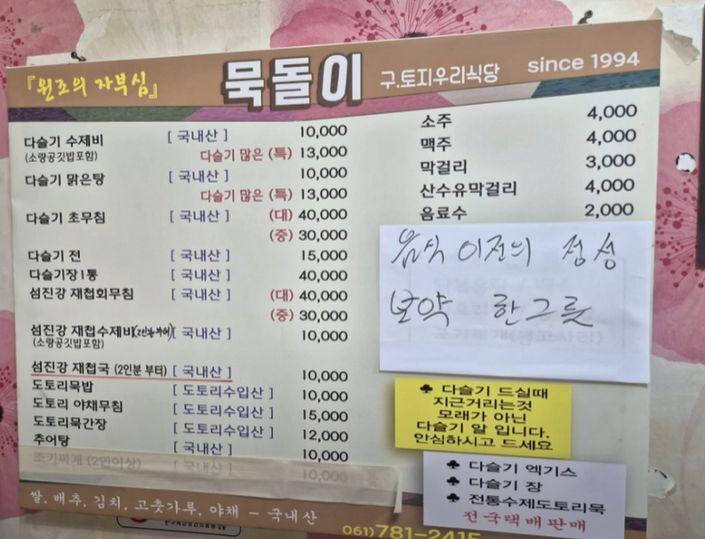 『원조의 자부심』 묵돌이 구.토지우리식당 since 1994
다슬기 수제비 [ 국내산 ] 10,000
(소량공깃밥포함) 다슬기 많은 (특) 13,000
다슬기 맑은탕 [ 국내산 ] 10,000
다슬기 많은 (특) 13,000
다슬기 초무침 [ 국내산 ] (대) 40,000
(중) 30,000
다슬기 전 [ 국내산 ] 15,000
다슬기장1통 [ 국내산 ] 40,000
섬진강 재첩회무침 [ 국내산 ] (대) 40,000
(중) 30,000
섬진강 재첩수제비(2인분부터) [ 국내산 ] 10,000
(소량공깃밥포함)
섬진강 재첩국 (2인분 부터) [ 국내산 ] 10,000
도토리묵밥 [ 도토리수입산 ] 10,000
도토리 야채무침 [ 도토리수입산 ] 15,000
도토리묵간장 [ 도토리수입산 ] 12,000
추어탕 [ 국내산 ] 10,000
(2인이상) [ 국내산 ] 10,000
쌀, 배추, 김치, 고춧가루, 야채 - 국내산
소주 4,000
맥주 4,000
막걸리 3,000
산수유막걸리 4,000
음료수 2,000
음식 이전의 정성
보약 한그릇
♣ 다슬기 드실때
지근거리는것
모래가 아닌
다슬기 알 입니다.
안심하시고 드세요
♣ 다슬기 엑기스
♣ 다슬기 장
♣ 전통수제도토리묵
전국택배판매
061)781-2415